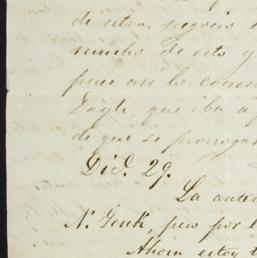 de ntro. negocio
mucho de esto y
pues asi lo
Doyle, que iba a
de que se prorrogas
Dic. 29.
La ante
N. York, pero por l
Ahora estoy t